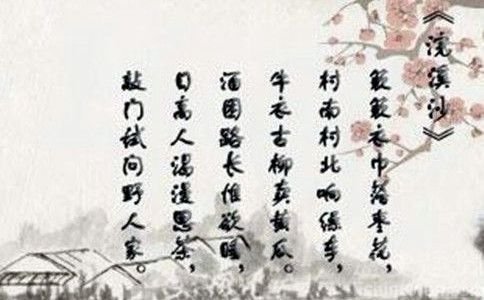 《浣溪沙》
簌簌衣巾落枣花，
村南村北响缲车，
牛衣古柳卖黄瓜。
酒困路长惟欲睡，
日高人渴漫思茶，
敲门试问野人家。